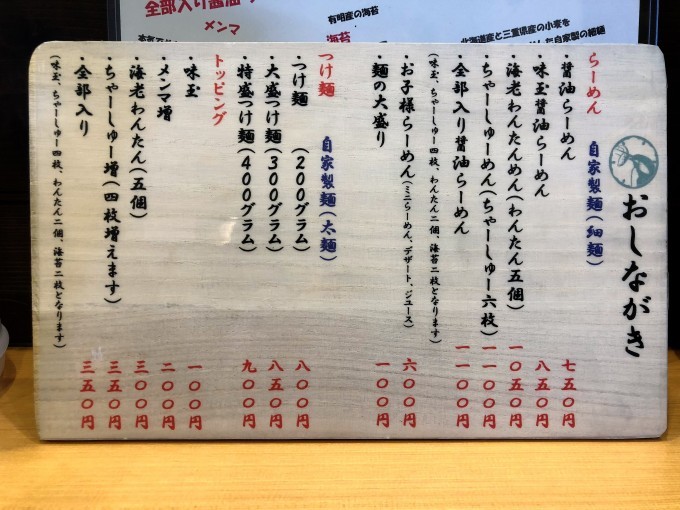 おしながき
らーめん 自家製麺(細麺)
・醤油らーめん 七五〇円
・味玉醤油らーめん 八五〇円
・海老わんたんめん(わんたん五個) 一〇五〇円
・ちゃーしゅーめん(ちゃーしゅー六枚) 一一〇〇円
・全部入り醤油らーめん 一一〇〇円
(味玉、ちゃーしゅー四枚、わんたん二個、海苔二枚となります)
・お子様らーめん(ミニらーめん、デザート、ジュース) 六〇〇円
・麺の大盛り 一〇〇円
つけ麺 自家製麺(太麺)
・つけ麺 (200グラム) 八〇〇円
・大盛つけ麺(300グラム) 八五〇円
・特盛つけ麺(400グラム) 九〇〇円
トッピング
・味玉 一〇〇円
・メンマ増 二〇〇円
・海老わんたん(五個) 三〇〇円
・ちゃーしゅー増(四枚増えます) 三五〇円
・全部入り 三五〇円
(味玉、ちゃーしゅー四枚、わんたん二個、海苔二枚となります)
全部入り醤油
メンマ
有明産の海苔
海苔
北海道産と三重県産の小麦を
自家製の細麺